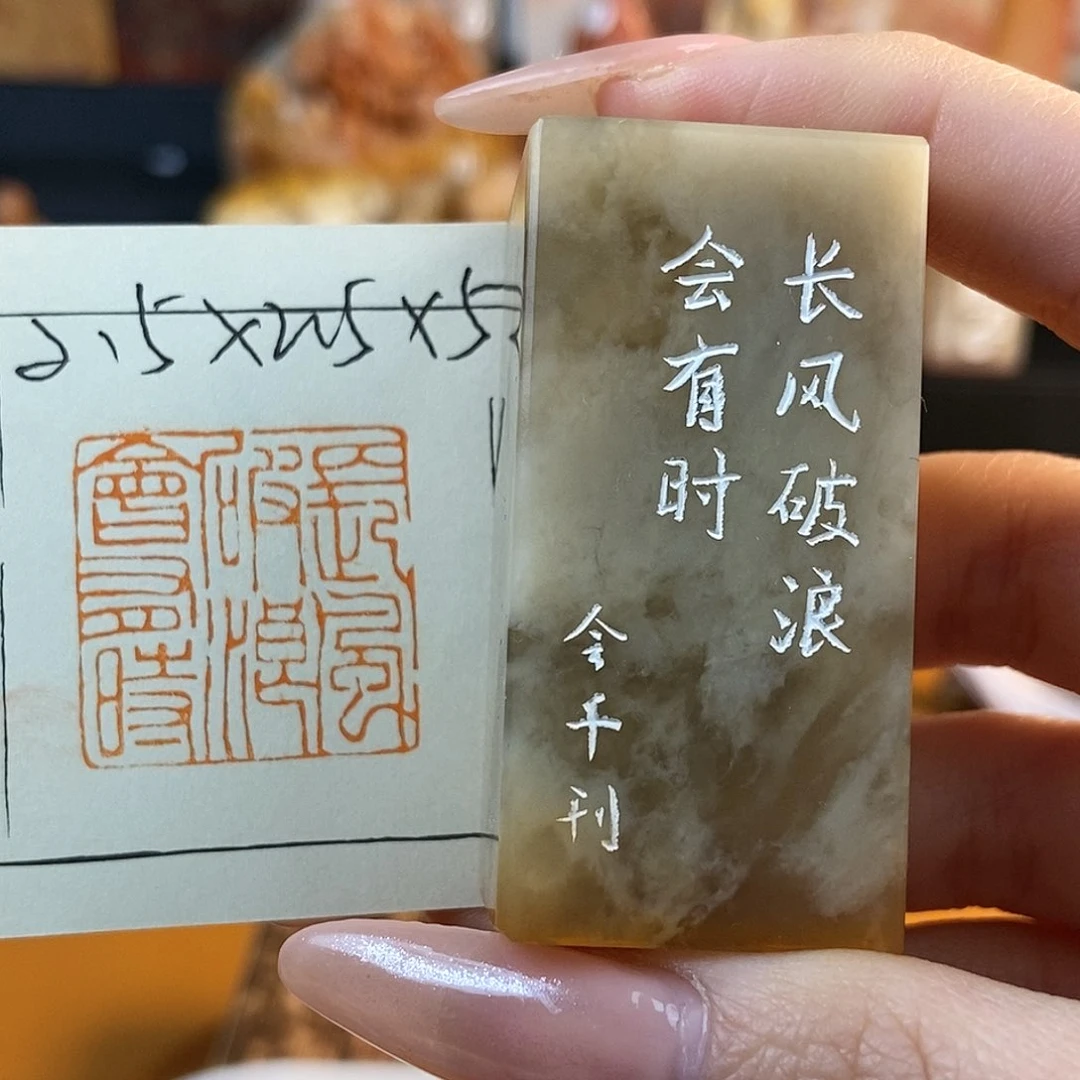 2.5×2.5×5
長風
破浪
會有時
长风破浪
会有时
会千刊